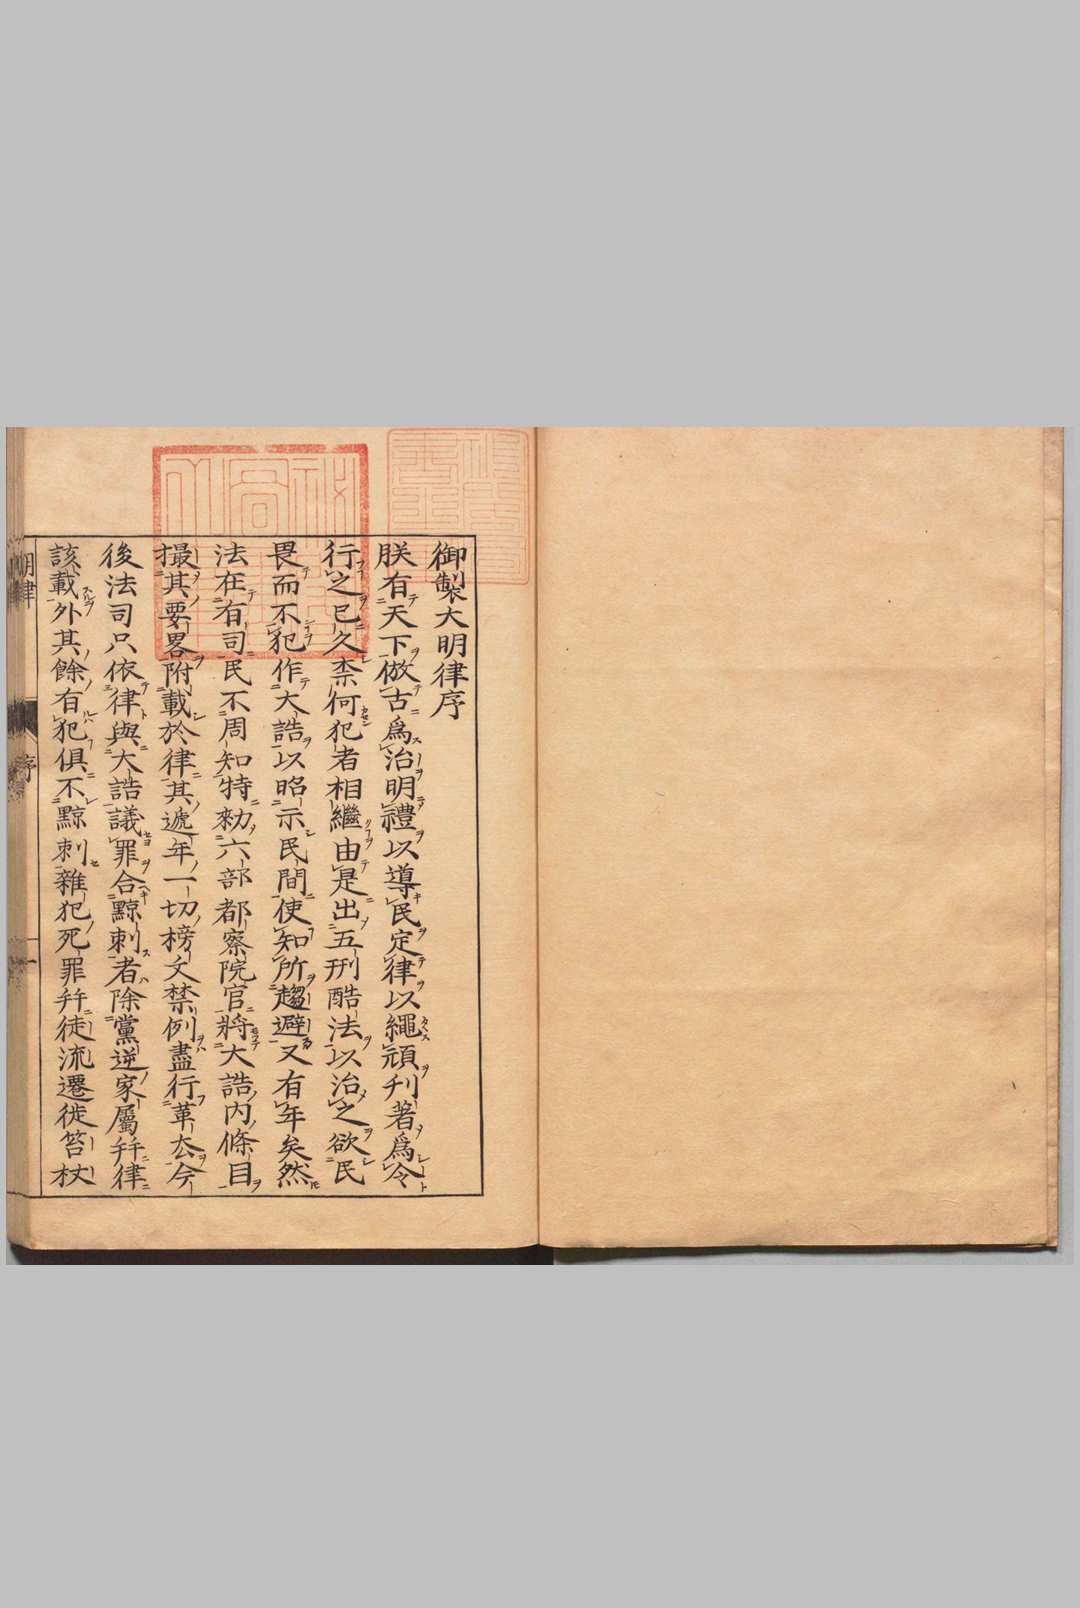 御製大明律序
朕有天下倣古爲治明禮以導民定律以繩頑刋著爲令
行之已久柰何犯者相繼由是出五刑酷法以治之欲民
畏而不犯作大誥以昭示民間使知所趨避又有年矣然
法在有司民不周知特勑六部都察院官將大誥内條目
撮其要畧附載於律其遞年一切榜文禁例盡行革去今
後法司只依律與大誥議罪合黥刺者除黨逆家屬幷律
該載外其餘有犯俱不黥刺雜犯死罪幷徒流遷徙笞杖
明律 序 一